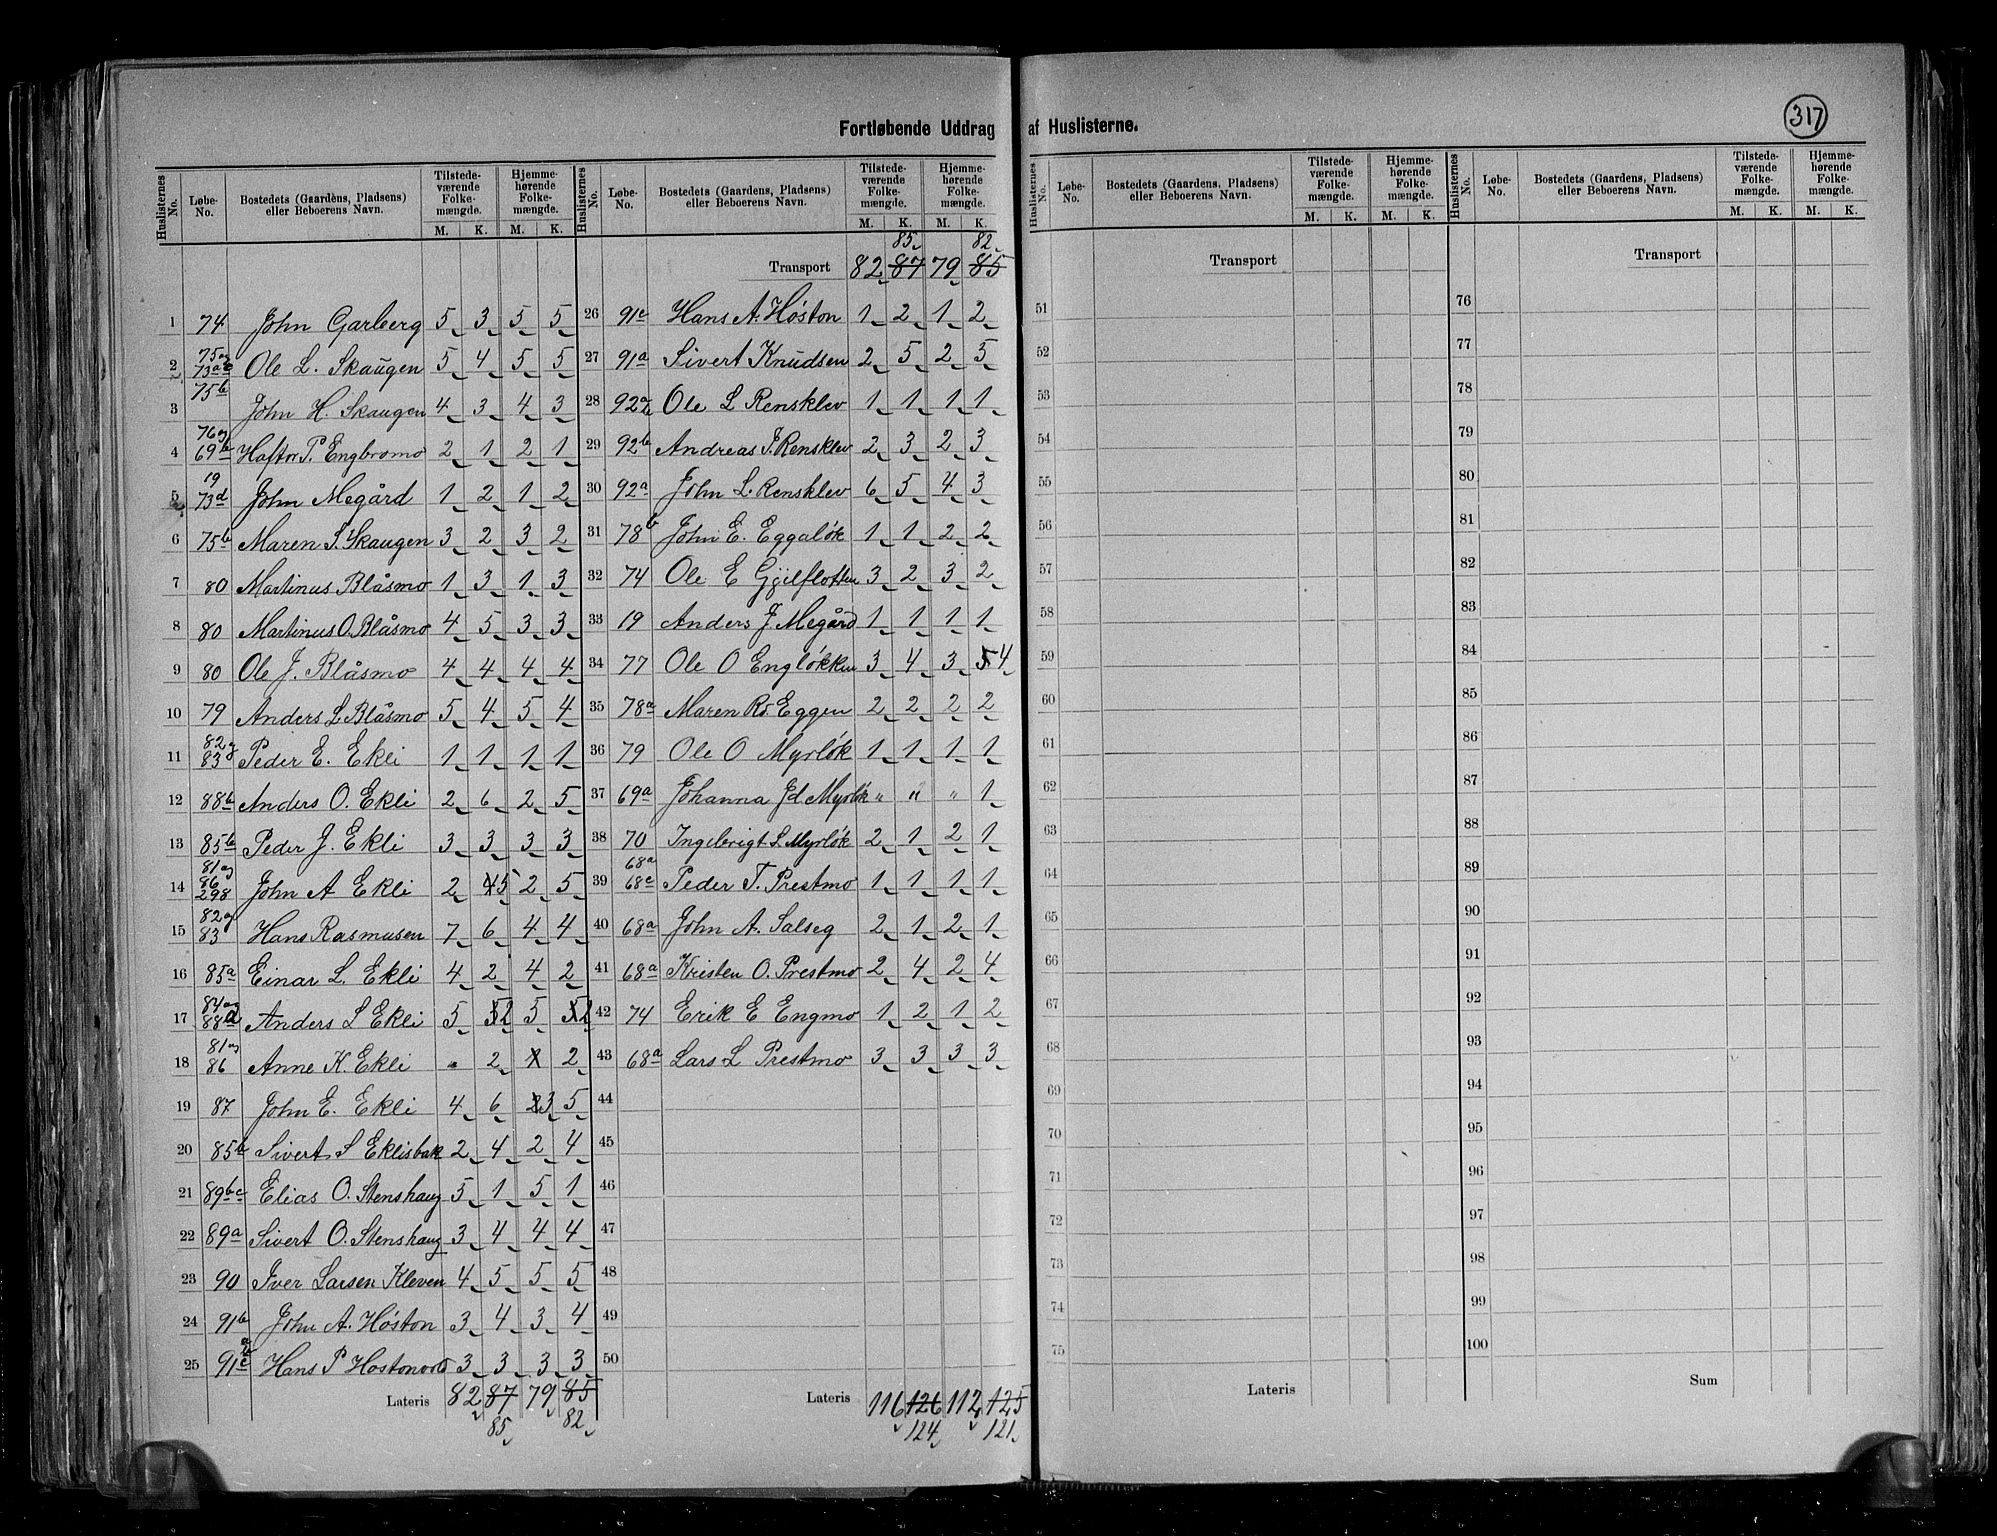 317
Fortløbende Uddrag af Huslisterne.
Huslisternes No. Løbe-No. Bostedets (Gaardens, Pladsens) eller Beboerens Navn. Tilstedeværende Folkemængde. M. K. Hjemmehørende Folkemængde. M. K.
1 74 John Garberg 5 3 5 5
2 75 og 73 Ole L. Skaugen 5 4 5 5
3 75b John H. Skaugen 4 3 4 3
4 76 og 69b Haftor P. Engbromo 2 1 2 1
5 19 73d John Megård 1 2 1 2
6 75b Maren S. Skaugen 3 2 3 2
7 80 Martinus Blåsmo 1 3 1 3
8 80 Martinus O. Blåsmo 4 5 3 3
9 80 Ole J. Blåsmo 4 4 4 4
10 79 Anders L Blåsmo 5 4 5 4
11 82 og 83 Peder E. Ekli 1 1 1 1
12 88b Anders O. Ekli 2 6 2 5
13 85b Peder J. Ekli 3 3 3 3
14 81 og 86 298 John A Ekli 2 4 5 2 5
15 82 og 83 Hans Rasmusen 7 6 4 4
16 85a Einar L. Ekli 4 2 4 2
17 84 og 88a Anders L Ekli 5 5 2 5 5 2
18 81 og 86 Anne K. Ekli " 2 1 2
19 87 John E. Ekli 4 6 2 3 5
20 85b Sivert S Eklisbak 2 4 2 4
21 89bc Elias O. Stenshaug 5 1 5 1
22 89a Sivert O. Stenshaug 3 4 4 4
23 90 Iver Larsen Kleven 4 5 5 5
24 91b John A. Høston 3 4 3 4
25 91 Hans P Hostonvold 3 3 3 3
Lateris 82 87 79 85
85 82
Huslisternes No. Løbe-No. Bostedets (Gaardens, Pladsens) eller Beboerens Navn. Tilstedeværende Folkemængde. M. K. Hjemmehørende Folkemængde. M. K.
85 82
Transport 82 87 79 85
26 91c Hans A. Høston 1 2 1 2
27 91a Sivert Knudsen 2 5 2 5
28 92 Ole L Rensklev 1 1 1 1
29 92b Andreas J. Rensklev 2 3 2 3
30 92a John L. Rensklev 6 5 4 3
31 78b John E. Eggaløk 1 1 2 2
32 74 Ole E Gjilflotten 3 2 3 2
33 19 Anders J. Megård 1 1 1 1
34 77 Ole O Engløkken 3 4 3 5 4
35 78a Maren Eggen 2 2 2 2
36 79 Ole O Myrløk 1 1 1 1
37 69a Johanna Jd Myrløk " " " 1
38 70 Ingebrigt S. Myrløk 2 1 2 1
39 68a 68c Peder T. Prestmo 1 1 1 1
40 68a John A. Salseg 2 1 2 1
41 68a Kristen O. Prestmo 2 4 2 4
42 74 Erik E Engmo 1 2 1 2
43 68a Lars L Prestmo 3 3 3 3
44
45
46
47
48
49
50
Lateris 116 126 112 125
124 121
Huslisternes No. Løbe-No. Bostedets (Gaardens, Pladsens) eller Beboerens Navn. Tilstedeværende Folkemængde. M. K. Hjemmehørende Folkemængde. M. K.
Transport
51
52
53
54
55
56
57
58
59
60
61
62
63
64
65
66
67
68
69
70
71
72
73
74
75
Lateris
Huslisternes No. Løbe-No. Bostedets (Gaardens, Pladsens) eller Beboerens Navn. Tilstedeværende Folkemængde. M. K. Hjemmehørende Folkemængde. M. K.
Transport
76
77
78
79
80
81
82
83
84
85
86
87
88
89
90
91
92
93
94
95
96
97
98
99
100
Sum